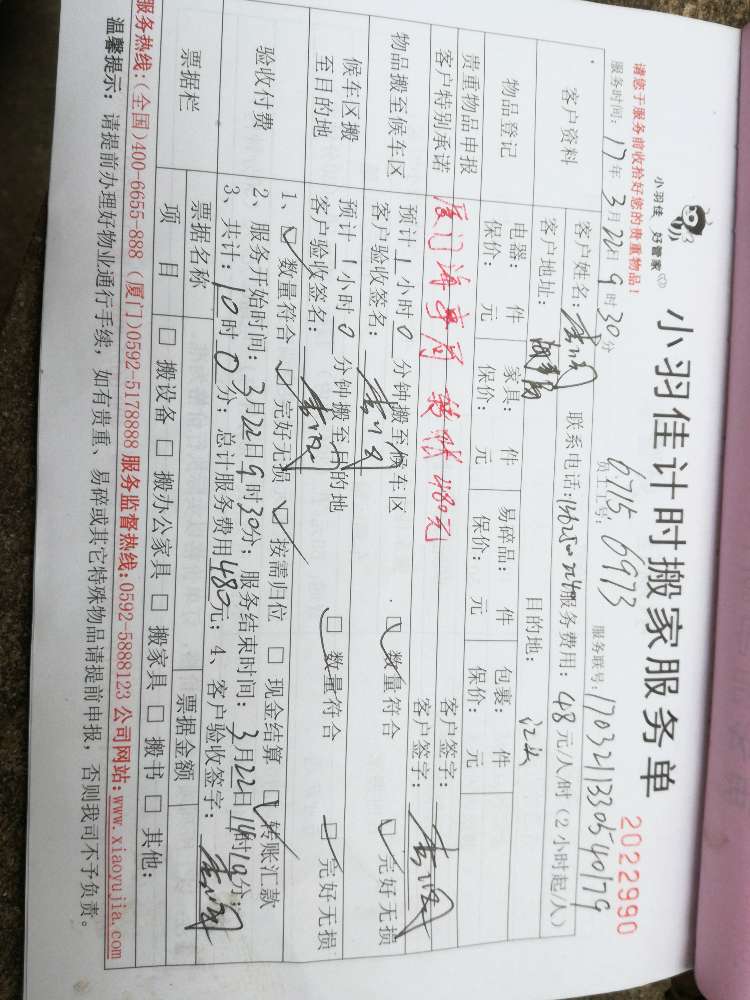 小羽佳 好管家
小羽佳计时搬家服务单
2022990
请您于服务前收拾好您的贵重物品！
员工工号: 6715 6973
服务时间: 17年3月22日9时30分
服务联号: 1703211330540179
客户资料
客户姓名:
联系电话:
服务费用: 48元/人/时(2小时起/人)
客户地址: 海事局
目的地:
物品登记
电器: 件 家具: 件 易碎品: 件 包裹: 件
保价: 元 保价: 元 保价: 元 保价: 元
贵重物品申报
客户签字:
客户特别承诺
厦门海事局 转账480元
客户签字:
物品搬至候车区
预计1小时0分钟搬至候车区
客户验收签名:
数量符合 完好无损
候车区搬
至目的地
预计1小时0分钟搬至目的地
客户验收签名:
数量符合 完好无损
验收付费
1、数量符合 完好无损 按需归位 现金结算 转账汇款
2、服务开始时间: 3月22日9时30分; 服务结束时间: 3月22日14时10分
3、共计: 10时0分; 总计服务费用480元; 4、客户验收签字:
票据栏
票据名称
票据金额
项目
搬设备 搬办公家具 搬家具 搬书 其他:
服务热线:(全国)400-6655-888 (厦门)0592-5178888 服务监督热线:0592-5888123 公司网站:www.xiaoyujia.com
温馨提示: 请提前办理好物业通行手续, 如有贵重、易碎或其它特殊物品请提前申报, 否则我司不予负责。